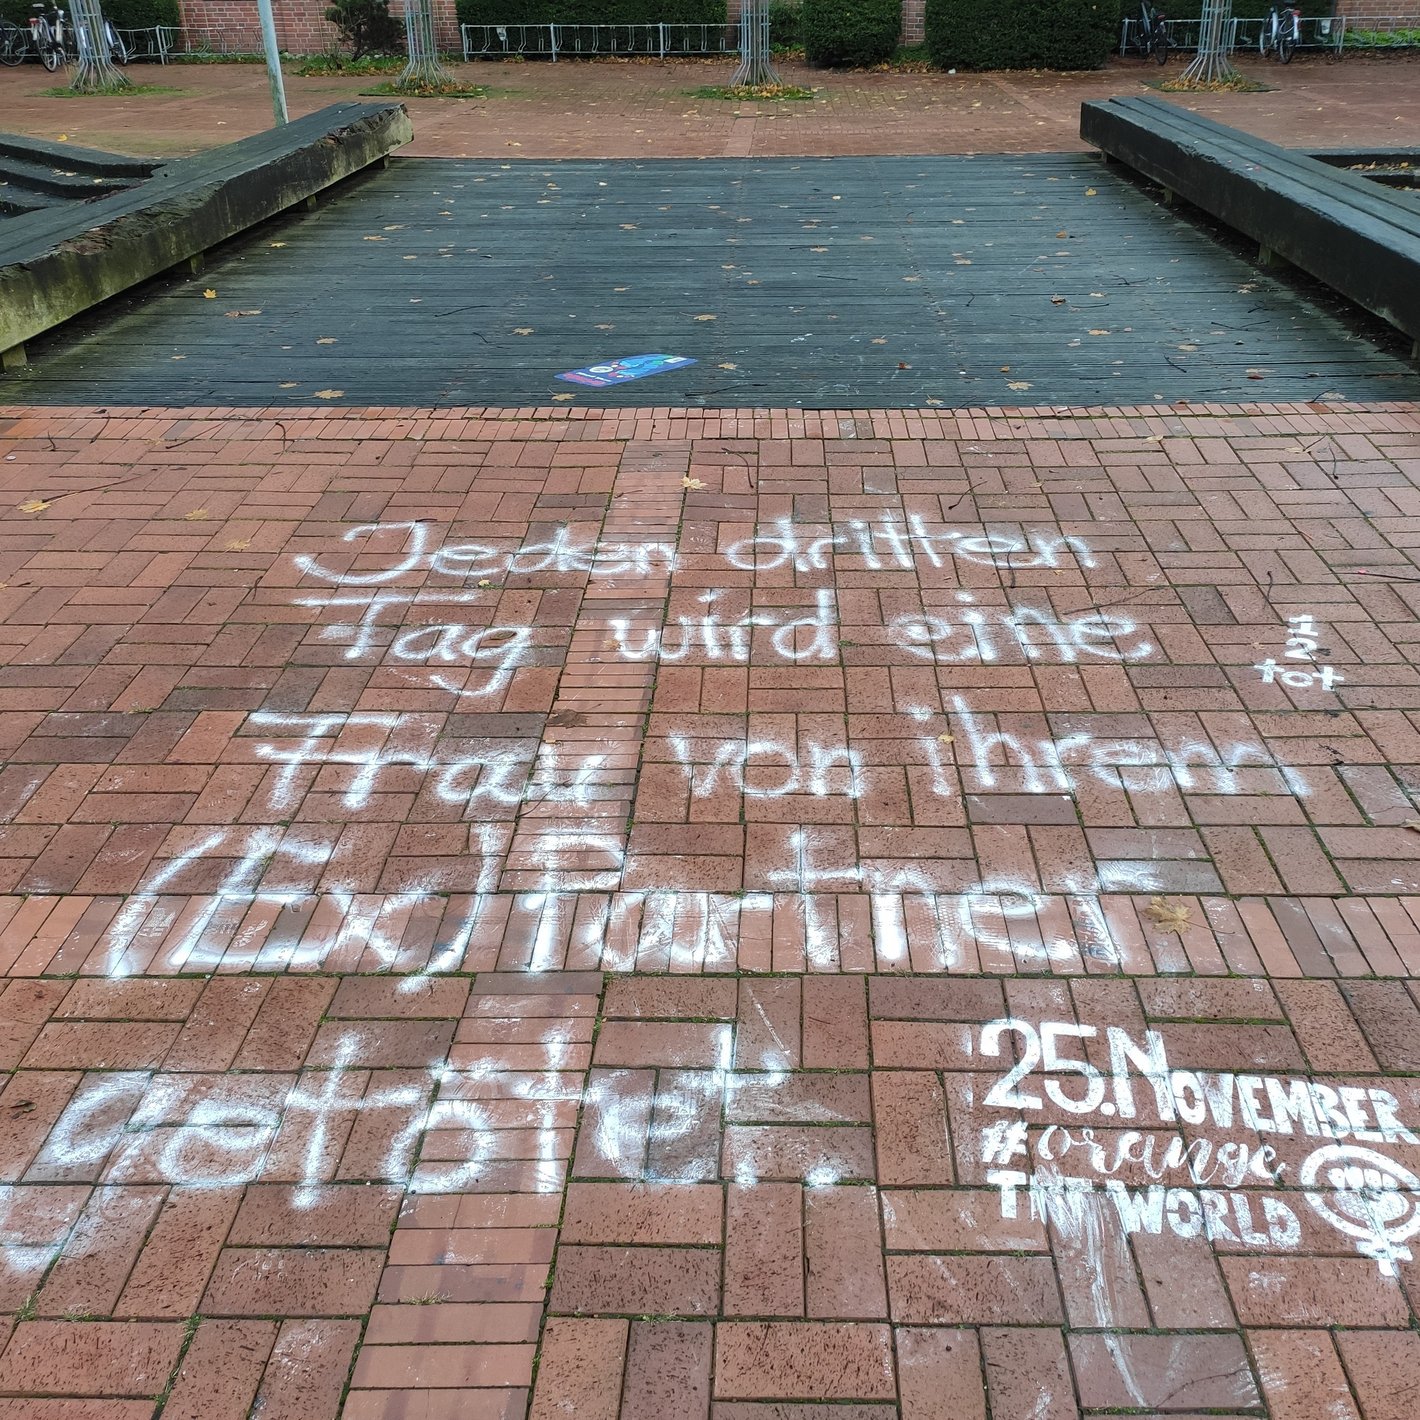 Jeden dritten
Tag wird eine
Frau von ihrem
(Ex)Partner
getötet.
tot
25. NOVEMBER
#orange
THE WORLD